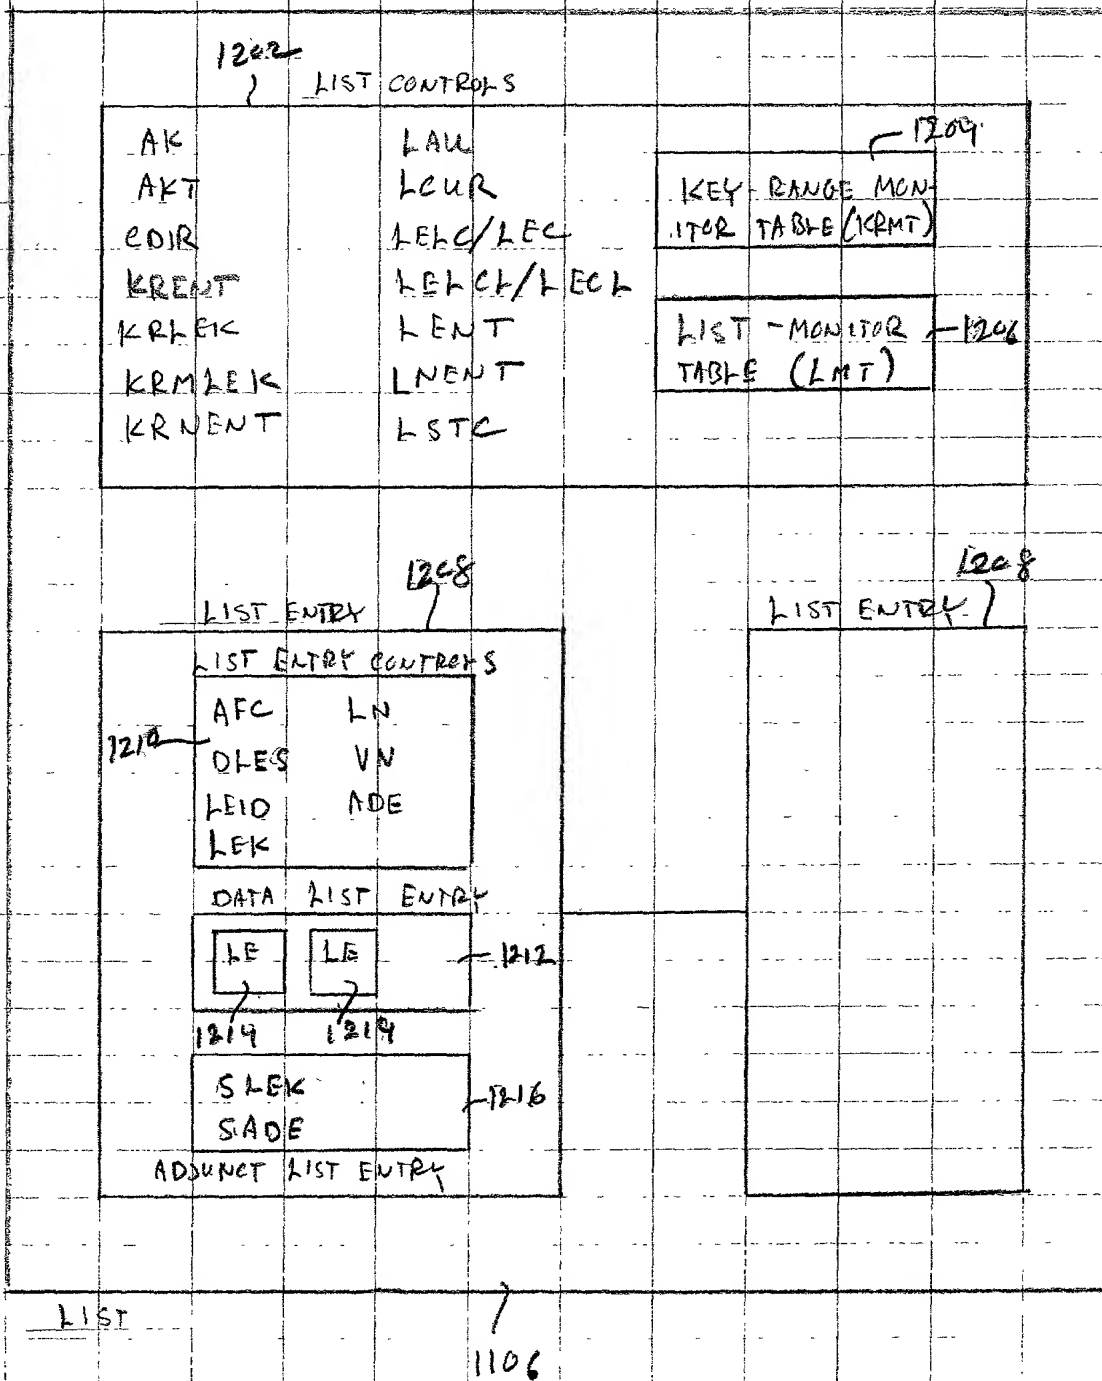 1202
LIST CONTROLS
AK
AKT
CDIR
KRENT
KRLEK
KRMLEK
KRNENT
LAU
LCUR
LELC/LEC
LELCL/LECL
LENT
LNENT
LSTC
1204
KEY-RANGE MON-
ITOR TABLE (KRMT)
LIST-MONITOR
TABLE (LMT)
1206
1208
LIST ENTRY
LIST ENTRY CONTROLS
1210
AFC LN
DLES VN
LEID ADE
LEK
DATA LIST ENTRY
LE LE
1212
1214 1214
SLEK
SADE
1216
ADJUNCT LIST ENTRY
1208
LIST ENTRY
LIST
1106